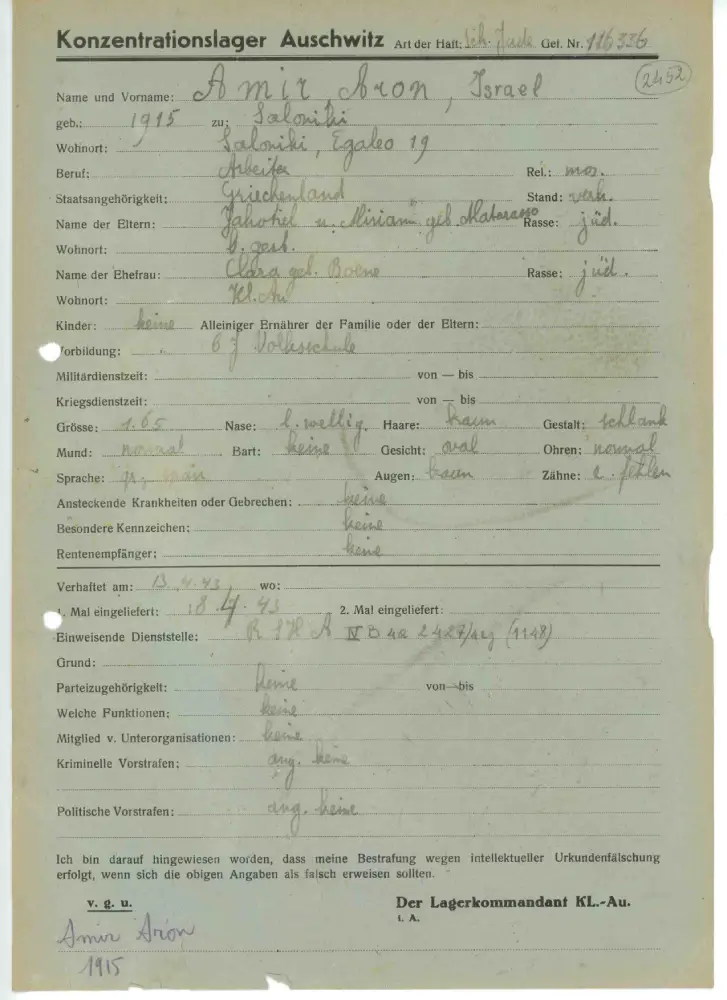 Konzentrationslager Auschwitz Art der Haft: Sch. Jude Gef. Nr. 116336
2452
Name und Vorname: Amir Aron, Israel
geb.: 1915 zu: Saloniki
Wohnort: Saloniki, Egaleo 19
Beruf: Arbeiter Rel.: mos.
Staatsangehörigkeit: Griechenland Stand: verh.
Name der Eltern: Jahotiel u. Miriam geb. Matarasso Rasse: jüd.
Wohnort: b. gest.
Name der Ehefrau: Clara geb. Rasse: jüd.
Wohnort: Kl. Au
Kinder: keine Alleiniger Ernährer der Familie oder der Eltern:
Vorbildung: 6 J Volksschule
Militärdienstzeit: von — bis
Kriegsdienstzeit: von — bis
Grösse: 1.65 Nase: l. wellig. Haare: braun Gestalt: schlank
Mund: normal Bart: keine Gesicht: oval Ohren: normal
Sprache: gr., span Augen: braun Zähne: 2 . fehlen
Ansteckende Krankheiten oder Gebrechen: keine
Besondere Kennzeichen: keine
Rentenempfänger: keine
Verhaftet am: 13.4.43 wo:
1. Mal eingeliefert: 18.4.43 2. Mal eingeliefert:
Einweisende Dienststelle: RSHA IV B 4a 2427/ (1148)
Grund:
Parteizugehörigkeit: keine von—bis
Welche Funktionen: keine
Mitglied v. Unterorganisationen: keine
Kriminelle Vorstrafen: ang. keine
Politische Vorstrafen: ang. keine
Ich bin darauf hingewiesen worden, dass meine Bestrafung wegen intellektueller Urkundenfälschung
erfolgt, wenn sich die obigen Angaben als falsch erweisen sollten.
v. g. u. Der Lagerkommandant KL.-Au.
I. A.
Amir Aron
1915